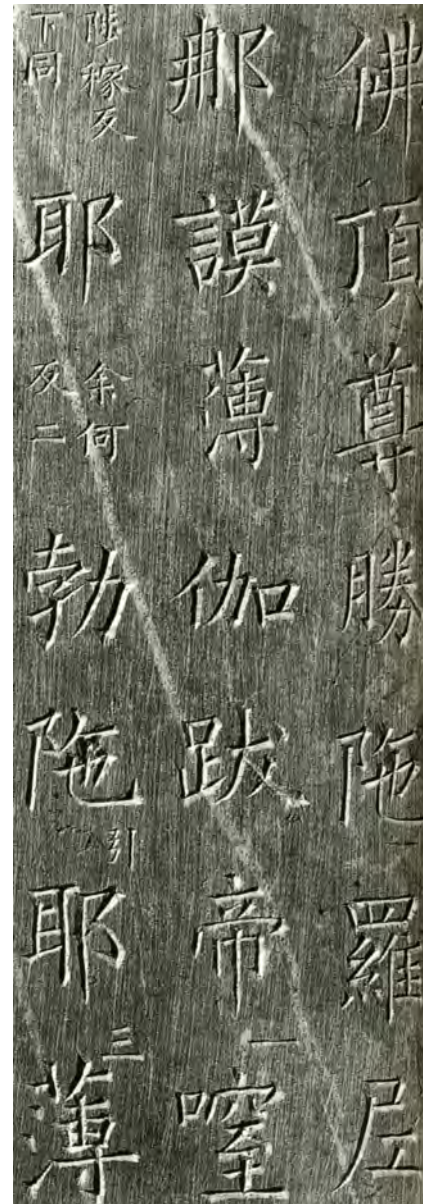 佛頂尊勝陁羅尼
那謨薄伽跋帝一
陟稼反
下同
耶余何
反二
勃陁引耶三薄